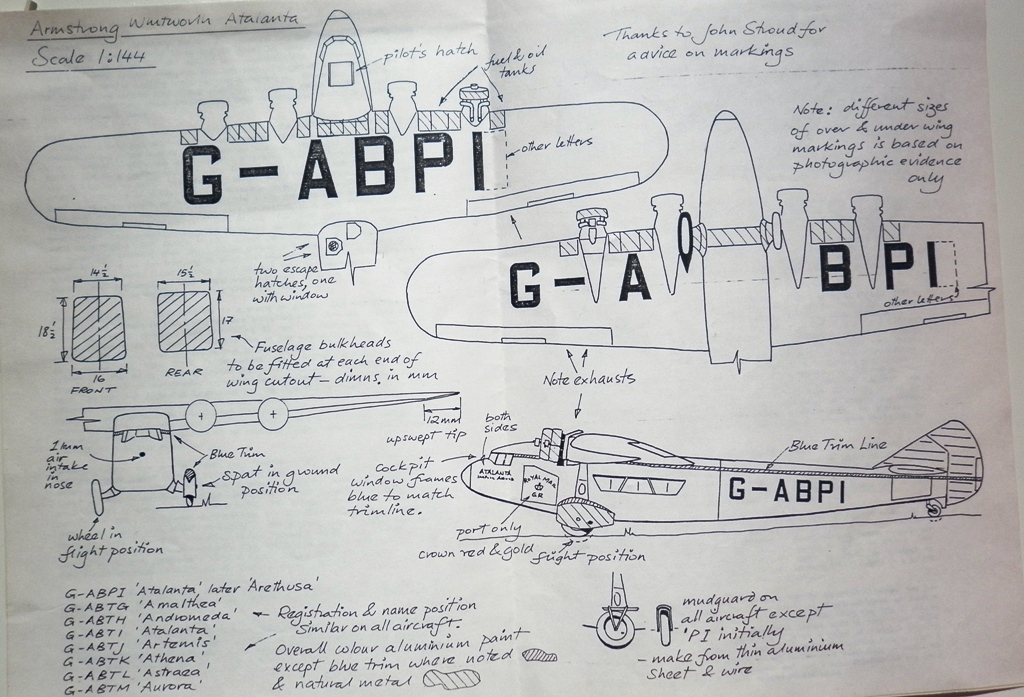 Armstrong Whitworth Atalanta
Scale 1:144
pilot's hatch
fuel & oil
tanks
Thanks to John Stroud for
advice on markings
Note: different sizes
of over & under wing
markings is based on
photographic evidence
only
G-ABPI
other letters
two escape
hatches, one
with window
G-A BPI
other letters
14½
18½
16
FRONT
15½
17
REAR
Fuselage bulkheads
to be fitted at each end of
wing cutout – dimns. in mm
Note exhausts
12mm
upswept tip
1mm
air
intake
in
nose
Blue Trim
Spat in ground
position
wheel in
flight position
both
sides
cockpit
window frames
blue to match
trimline.
Blue Trim Line
ATALANTA
ROYAL MAIL
GR
G-ABPI
port only
crown red & gold
flight position
G-ABPI 'Atalanta', later 'Arethusa'
G-ABTG 'Amalthea'
G-ABTH 'Andromeda'
G-ABTI 'Atalanta'
G-ABTJ 'Artemis'
G-ABTK 'Athena'
G-ABTL 'Astraea'
G-ABTM 'Aurora'
Registration & name position
similar on all aircraft.
Overall colour aluminium paint
except blue trim where noted
& natural metal
mudguard on
all aircraft except
'PI initially
– make from thin aluminium
sheet & wire